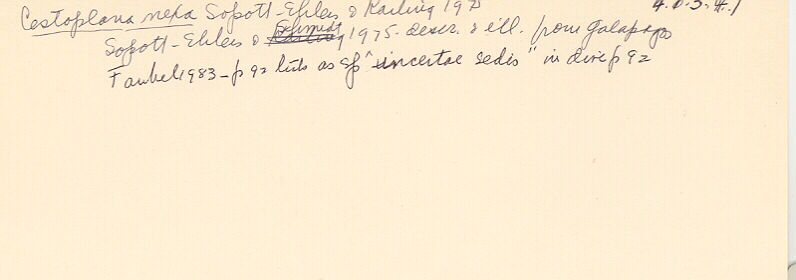 Cestoplana nexa Sopott-Ehlers & Karling 197 4.0.3.4.1
Sopott-Ehlers & Schmidt 1975. descr. & ill. from Galapagos
Faubel 1983 - p 92 lists as sp "incertae sedis" in p 92